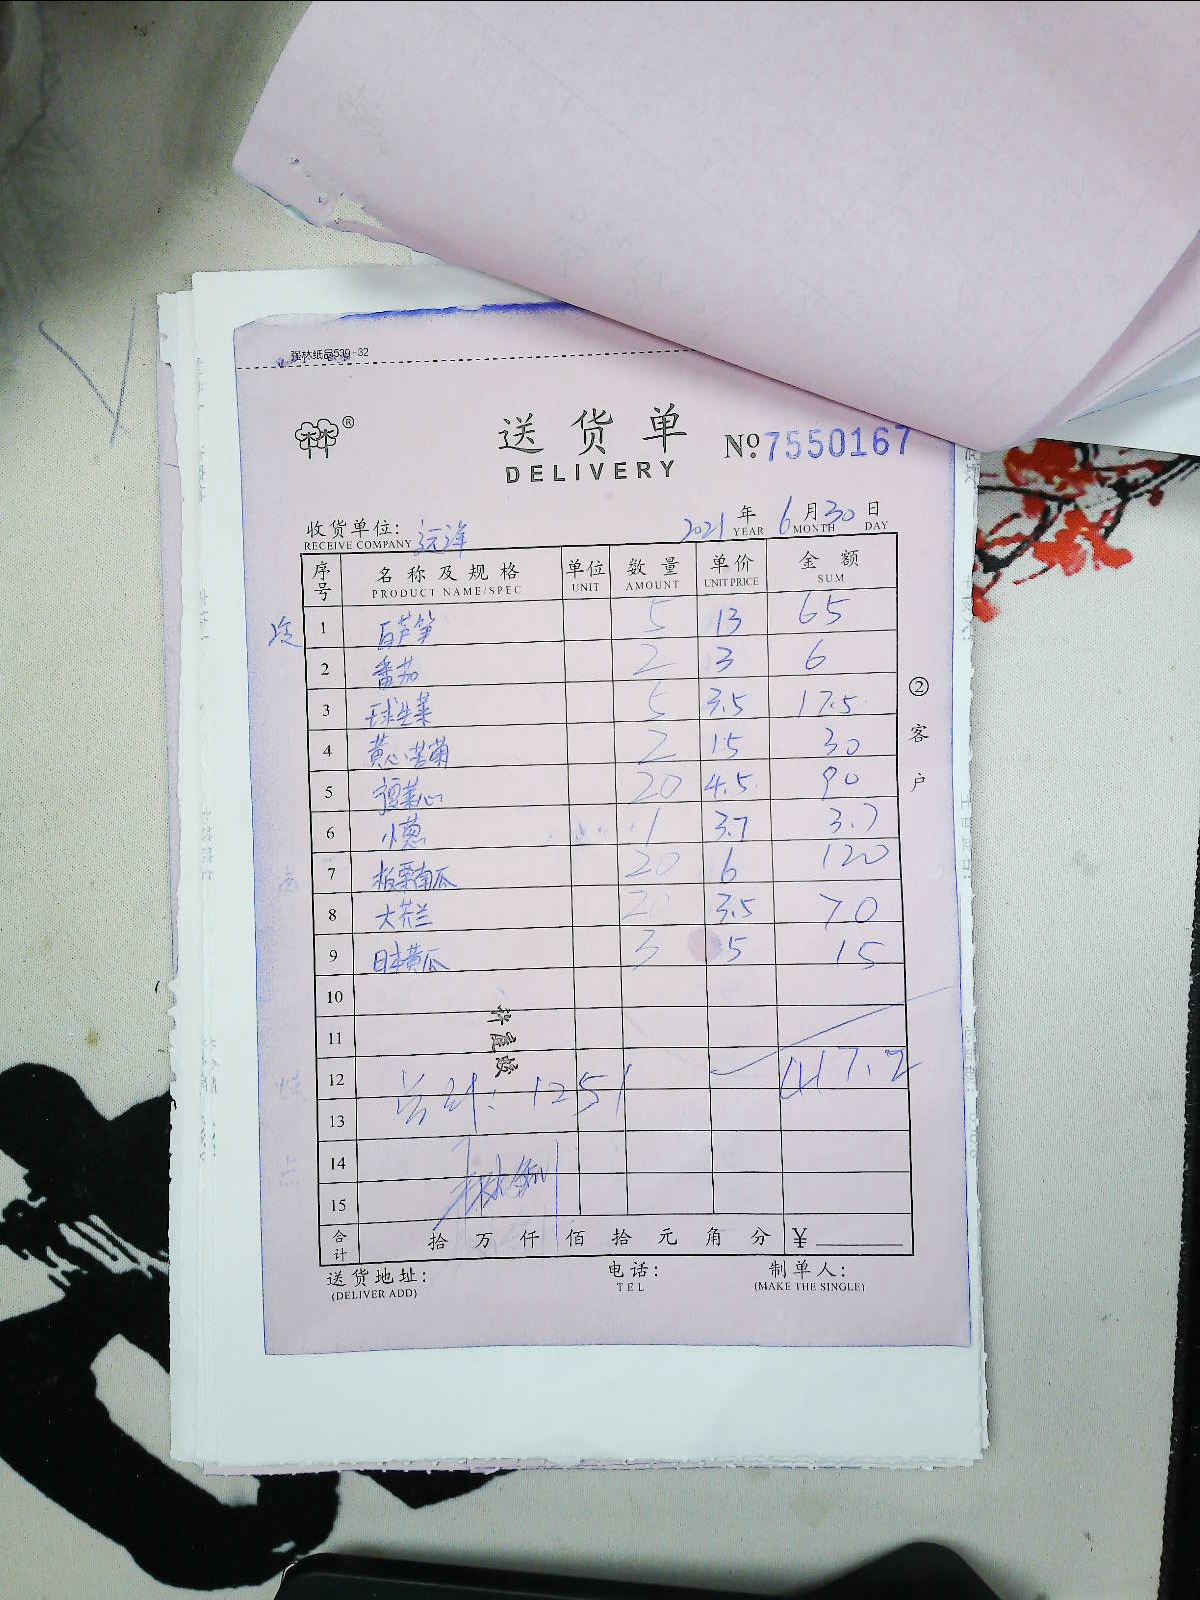 强林纸品539-32
®
送货单
DELIVERY
№7550167
收货单位: 远洋 2021年 6月30日
RECEIVE COMPANY YEAR MONTH DAY
序号 名称及规格 单位 数量 单价 金额
PRODUCT NAME/SPEC UNIT AMOUNT UNIT PRICE SUM
1 白芦笋 5 13 65
2 番茄 2 3 6
3 球生菜 5 3.5 17.5
4 黄心苦菊 2 15 30
5 菜心 20 4.5 90
6 小葱 1 3.7 3.7
7 板栗南瓜 20 6 120
8 大芥兰 20 3.5 70
9 日本黄瓜 3 5 15
10
11
12 417.2
13 总计: 1251
14
15
合计 拾 万 仟 佰 拾 元 角 分 ¥
送货地址: 电话: 制单人:
(DELIVER ADD) TEL (MAKE THE SINGLE)
②客户